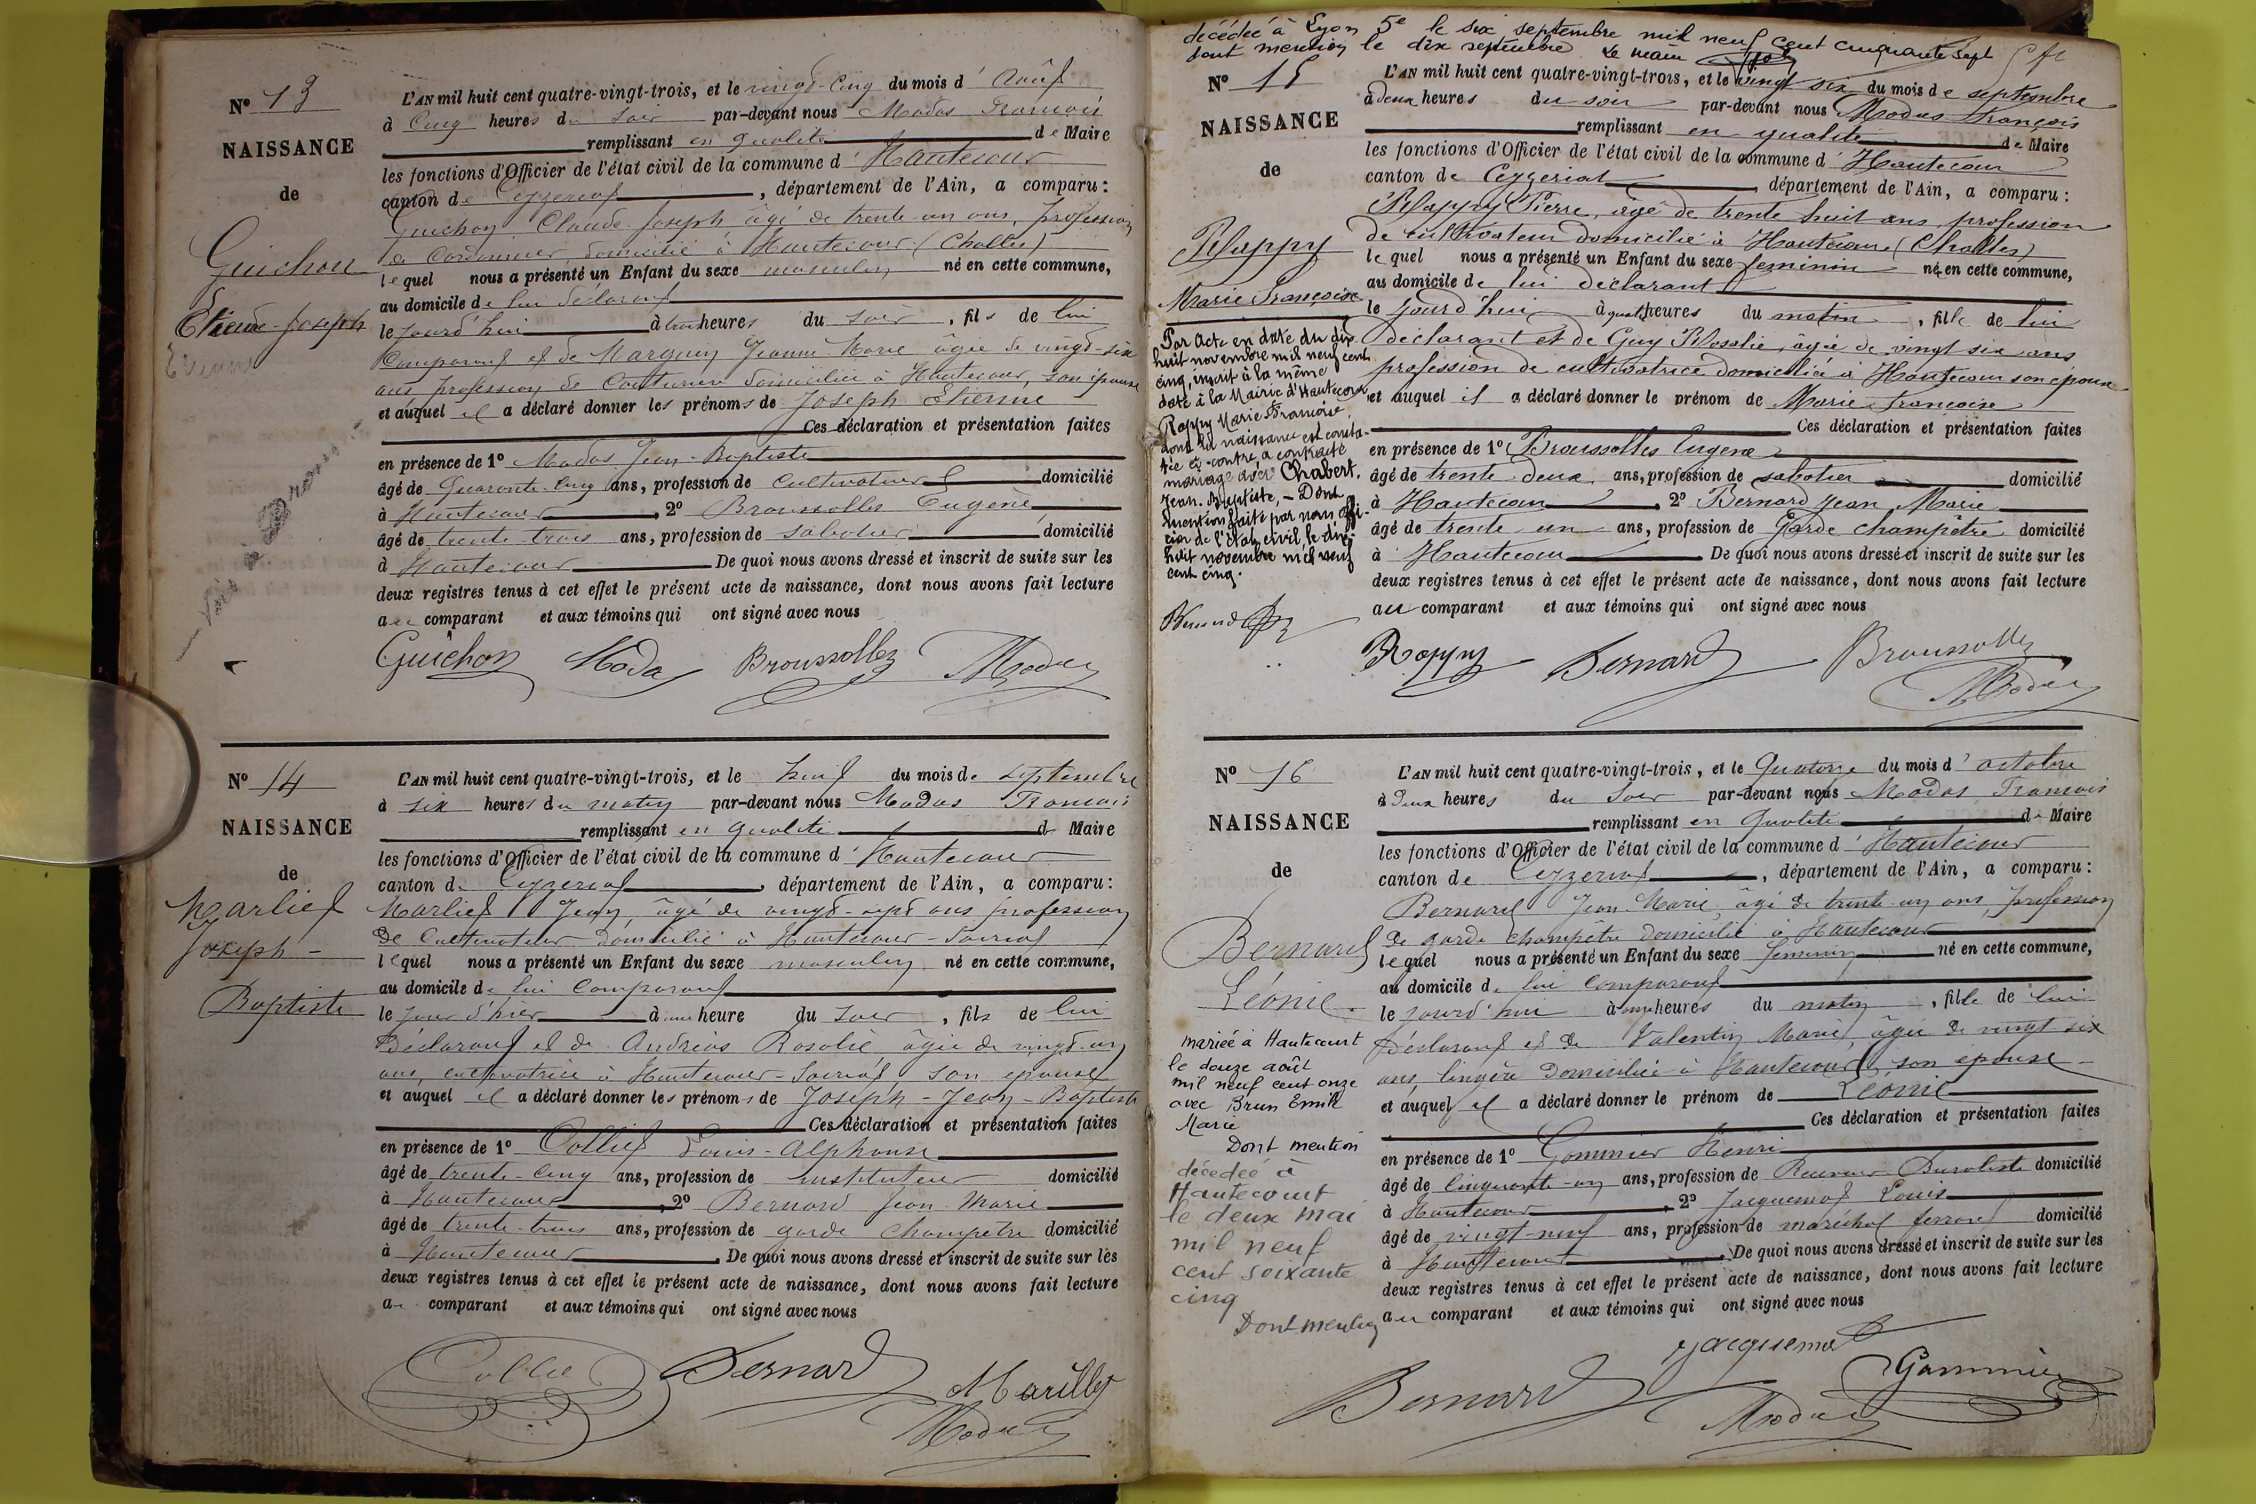 N° 13
NAISSANCE
de
Guichon
Etienne-Joseph
Etienne
L'AN mil huit cent quatre-vingt-trois, et le vingt-cinq du mois d'Août
à Cinq heures du soir par-devant nous Modas François
remplissant en qualité de Maire
les fonctions d'Officier de l'état civil de la commune d'Hautecour
canton de Ceyzeriat, département de l'Ain, a comparu :
Guichon Claude Joseph âgé de trente un ans, profession
de Cordonnier, domicilié à Hautecour (Cholles)
lequel nous a présenté un Enfant du sexe masculin né en cette commune,
au domicile de lui déclarant
le jourd'hui à trois heures du soir, fils de lui
Comparant et de Marguin Jeanne Marie âgée de vingt-six
ans, profession de Couturière domiciliée à Hautecour, son épouse
et auquel il a déclaré donner les prénoms de Joseph Etienne
Ces déclaration et présentation faites
en présence de 1° Modas Jean-Baptiste
âgé de Quarante-cinq ans, profession de Cultivateur domicilié
à Hautecour, 2° Broussolles Eugène
âgé de trente-trois ans, profession de sabotier domicilié
à Hautecour De quoi nous avons dressé et inscrit de suite sur les
deux registres tenus à cet effet le présent acte de naissance, dont nous avons fait lecture
au comparant et aux témoins qui ont signé avec nous
Guichon Modas Broussolles Modas
N° 14
NAISSANCE
de
Marliet
Joseph-
Baptiste
L'AN mil huit cent quatre-vingt-trois, et le huit du mois de septembre
à six heures du matin par-devant nous Modas François
remplissant en qualité de Maire
les fonctions d'Officier de l'état civil de la commune d'Hautecour
canton de Ceyzeriat, département de l'Ain, a comparu :
Marliet Jean, âgé de vingt-sept ans profession
de Cultivateur domicilié à Hautecour-
lequel nous a présenté un Enfant du sexe masculin né en cette commune,
au domicile de lui Comparant
le jour d'hier à une heure du soir, fils de lui
Déclarant et de Andréas Rosalie, âgée de vingt-un
ans, cultivatrice à Hautecour- son épouse
et auquel il a déclaré donner les prénoms de Joseph-Jean-Baptiste
Ces déclaration et présentation faites
en présence de 1° Colliet Louis-Alphonse
âgé de trente-cinq ans, profession de instituteur domicilié
à Hautecour, 2° Bernard Jean Marie
âgé de trente-trois ans, profession de garde champetre domicilié
à Hautecour De quoi nous avons dressé et inscrit de suite sur les
deux registres tenus à cet effet le présent acte de naissance, dont nous avons fait lecture
au comparant et aux témoins qui ont signé avec nous
Bernard Marillet
Modas
décédée à Lyon 5e le six septembre mil neuf cent cinquante sept
dont mention le dix septembre Le maire
N° 15
NAISSANCE
de
Rappy
Marie Françoise
Par Acte en date du dix
huit novembre mil neuf cent
cinq, inscrit à la même
date à la Mairie d'Hautecour,
Rappy Marie Françoise,
dont la naissance est consta-
tée ci-contre, a contracté
mariage avec Chabert,
Jean-Baptiste, - Dont
mention faite par nous offi-
cier de l'état civil le dix
huit novembre mil neuf
cent cinq.
Bernard
L'AN mil huit cent quatre-vingt-trois, et le vingt six du mois de septembre
à deux heures du soir par-devant nous Modas François
remplissant en qualité de Maire
les fonctions d'Officier de l'état civil de la commune d'Hautecour
canton de Ceyzeriat, département de l'Ain, a comparu :
Rappy Pierre, âgé de trente huit ans profession
de cultivateur domicilié à Hautecour (Cholles)
lequel nous a présenté un Enfant du sexe feminin né en cette commune,
au domicile de lui déclarant
le jourd'hui à quatre heures du matin, fille de lui
déclarant et de Guy Rosalie, âgée de vingt six ans
profession de cultivatrice domiciliée à Hautecour son épouse
et auquel il a déclaré donner le prénom de Marie Francoise
Ces déclaration et présentation faites
en présence de 1° Broussolles Eugene
âgé de trente deux ans, profession de sabotier domicilié
à Hautecour, 2° Bernard Jean Marie
âgé de trente un ans, profession de Garde champêtre domicilié
à Hautecour De quoi nous avons dressé et inscrit de suite sur les
deux registres tenus à cet effet le présent acte de naissance, dont nous avons fait lecture
au comparant et aux témoins qui ont signé avec nous
Rappy Bernard Broussolles
Modas
N° 16
NAISSANCE
de
Bernard
Léonie
mariée à Hautecourt
le douze août
mil neuf cent onze
avec Brun Emile
Marie
Dont mention
décédée à
Hautecourt
le deux mai
mil neuf
cent soixante
cinq
Dont mention
L'AN mil huit cent quatre-vingt-trois, et le Quatorze du mois d'octobre
à Deux heures du soir par-devant nous Modas François
remplissant en Qualité de Maire
les fonctions d'Officier de l'état civil de la commune d'Hautecour
canton de Ceyzeriat, département de l'Ain, a comparu :
Bernard Jean-Marie, âgé de trente-un ans, profession
de garde champetre domicilié à Hautecour
lequel nous a présenté un Enfant du sexe feminin né en cette commune,
au domicile de lui Comparant
le jourd'hui à heures du matin, fille de lui
Déclarant et de Valentin Marie, âgée de vingt six
ans, lingère domiciliée à Hautecour, son épouse
et auquel il a déclaré donner le prénom de Léonie
Ces déclaration et présentation faites
en présence de 1° Gommier Henri
âgé de Cinquante-un ans, profession de Receveur Buraliste domicilié
à Hautecour, 2° Jacquemot Louis
âgé de vingt-neuf ans, profession de maréchal ferrant domicilié
à Hautecour De quoi nous avons dressé et inscrit de suite sur les
deux registres tenus à cet effet le présent acte de naissance, dont nous avons fait lecture
au comparant et aux témoins qui ont signé avec nous
Jacquemot
Bernard Modas Gommier